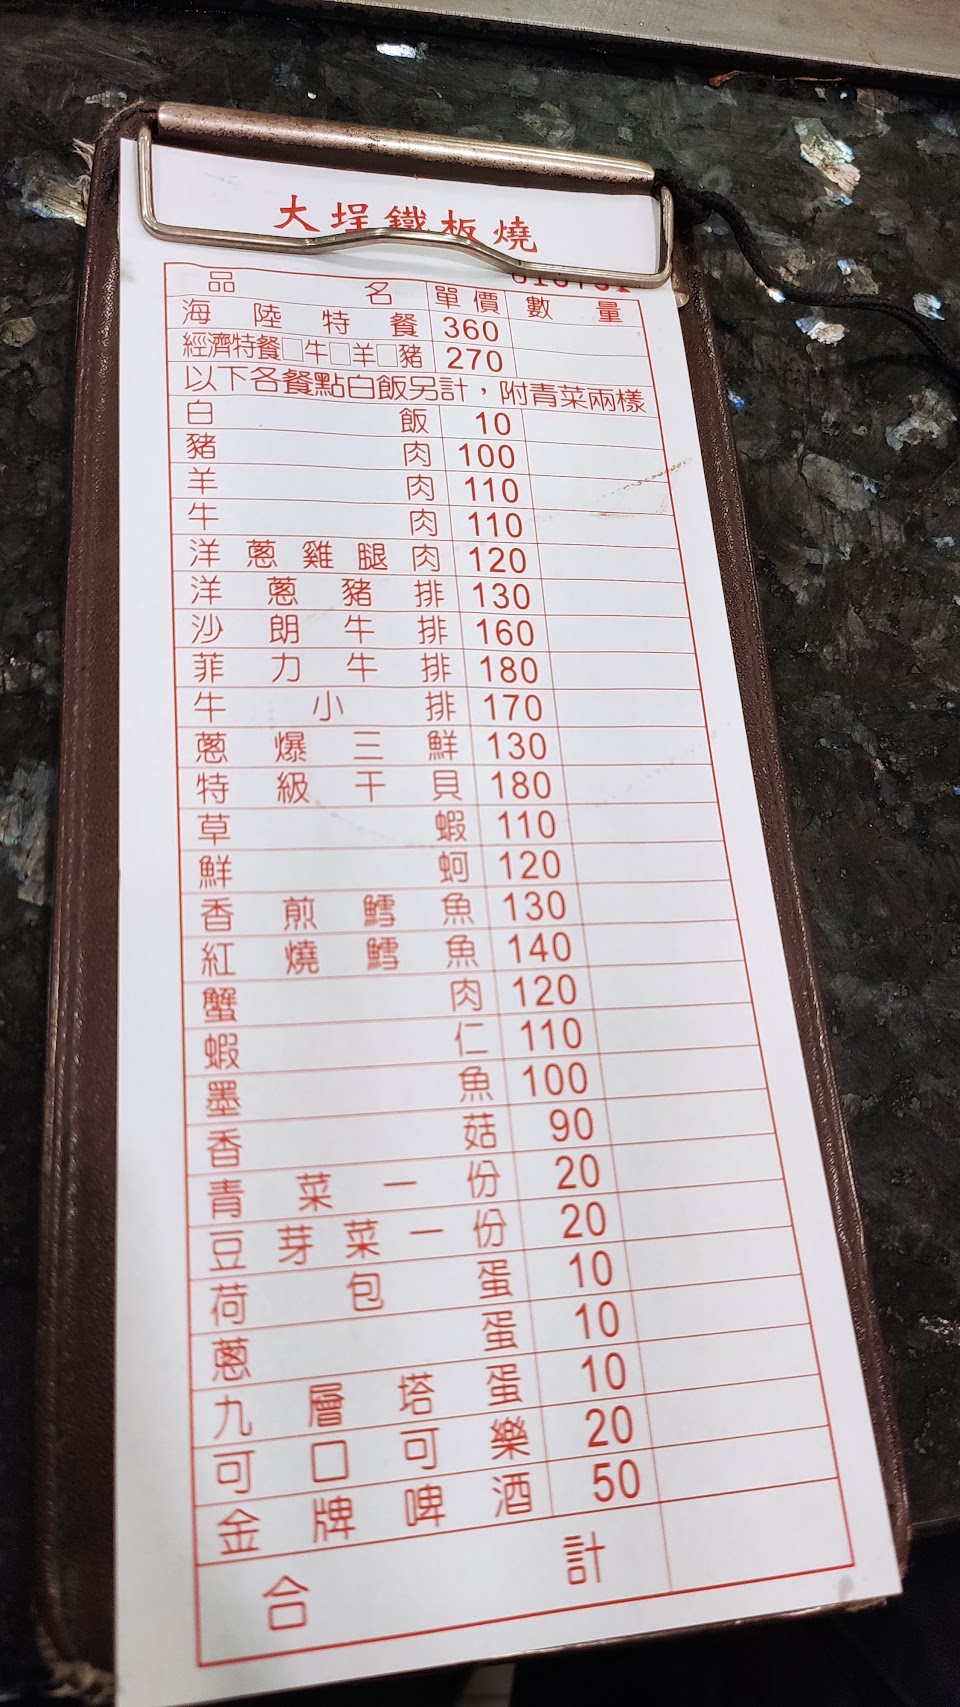 大埕鐵板燒
品名 單價 數量
海陸特餐 360
經濟特餐□牛□羊□豬 270
以下各餐點白飯另計，附青菜兩樣
白飯 10
豬肉 100
羊肉 110
牛肉 110
洋蔥雞腿肉 120
洋蔥豬排 130
沙朗牛排 160
菲力牛排 180
牛小排 170
蔥爆三鮮 130
特級干貝 180
草蝦 110
鮮蚵 120
香煎鱈魚 130
紅燒鱈魚 140
蟹肉 120
蝦仁 110
墨魚 100
香菇 90
青菜一份 20
豆芽菜一份 20
荷包蛋 10
蔥蛋 10
九層塔蛋 10
可口可樂 20
金牌啤酒 50
合計